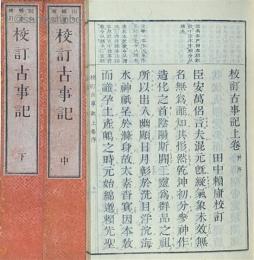 校訂古事記上卷 幷序
田中頼庸校訂
臣安萬侶言夫混元既凝氣象未效無
名無爲誰知其形然乾坤初分參神作
造化之首陰陽斯開二靈爲群品之祖
所以出入幽顯日月彰於洗目浮沈海
水神祇呈於滌身故太素杳冥因本敎
而識孕土產嶋之時元始綿邈賴先聖
校訂古事記 中
校訂古事記 下